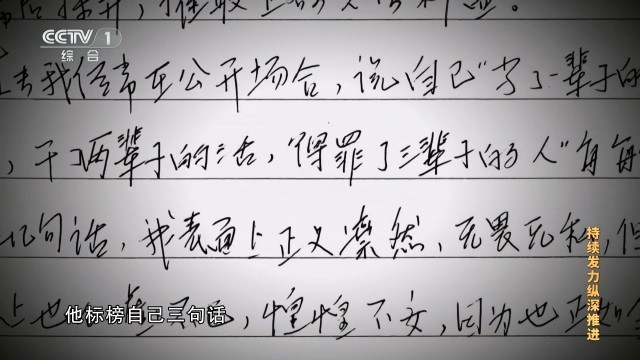 CCTV 1
综合
去我经常在公开场合，说自己"当了一辈子的
，干了两辈子的活，"得罪了三辈子的人"每每
几句话，我表面上正义凛然，无畏无私，但
惶惶不安，因为也正如
他标榜自己三句话
持续发力纵深推进